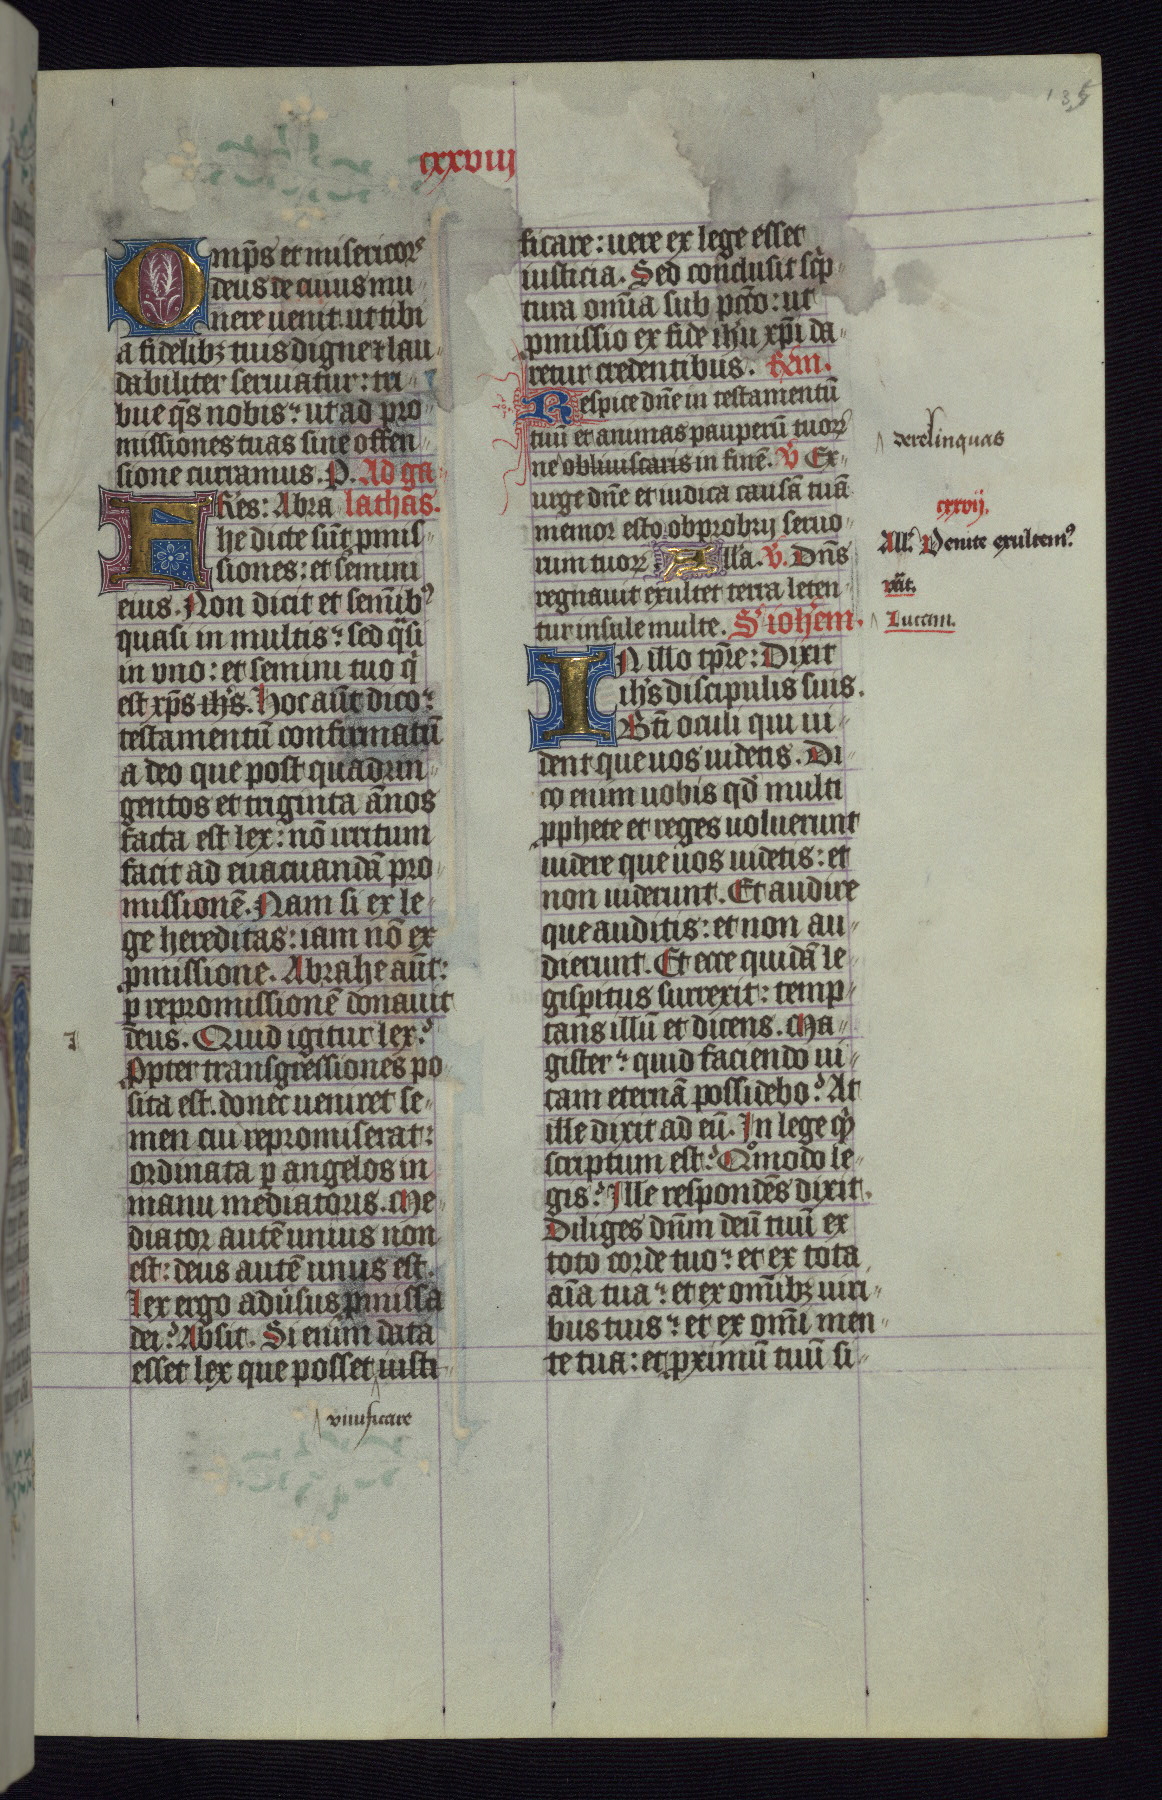 135
cxxviij
Omp̄s et misericors
deus de cuius mu
nere uenit ut tibi
a fidelibꝫ tuis digne ⁊ lau
dabiliter seruiatur: tri
bue q̄s nobis: ut ad pro
missiones tuas sine offen
sione curramus. P. Ad ga
Fr̄es: Abra lathas.
he dicte sūt ꝓmis
siones: et semini
eius. Non dicit et semībꝰ
quasi in multis: sed q̄si
in vno: et semini tuo q̇
est xp̄s ih̄s. Hoc aūt dico:
testamentū confirmatū
a deo que post quadrin
gentos et triginta ānos
facta est lex: nō irritum
facit ad euacuandā pro
missionē. Nam si ex le
ge hereditas: iam nō ex
ꝓmissione. Abrahe aūt:
ꝑ repromissionē donauit
deus. Quid igitur lex?
Ꝓpter transgressiones po
sita est. donec ueniret se
men cui repromiserat:
ordinata ꝑ angelos in
manu mediatoris. Me
diator autē unius non
est: deus autē unus est.
Lex ergo adūsus ꝓmissa
dei? Absit. Si enim data
esset lex que posset iusti
viuificare
ficare: uere ex lege esset
iusticia. Sed conclusit sc̄p
tura om̄ia sub pctō: ut
ꝓmissio ex fide ih̄u xp̄i da
retur credentibus. Rm̄.
Respice dn̄e in testamentū
tuū et animas pauperū tuoꝝ
ne obliuiscaris in finē. V̄ Ex
urge dn̄e et iudica causā tuā
memor esto obprobrij seruo
rum tuoꝝ Alla. V̄. Dn̄s
regnauit exultet terra leten
tur insule multe. S' ioh'em.
In illo tp̄re: Dixit
ih̄s discipulis suis.
Bt̄i oculi qui ui
dent que uos uidetis. Di
co enim uobis qd̄ multi
ꝓphete et reges uoluerunt
uidere que uos uidetis: et
non uiderunt. Et audire
que auditis: et non au
dierunt. Et ecce quidā le
gisp̄itus surrexit: temp
tans illū et dicens. Ma
gister: quid faciendo ui
tam eternā possidebo? At
ille dixit ad eū. In lege qͥd
scriptum est? Qͦmodo le
gis? Ille respondēs dixit.
Diliges dn̄m deū tuū ex
toto corde tuo: et ex tota
aīa tua: et ex omībꝫ uiri
bus tuis: et ex om̄i men
te tua: et ꝓximū tuū si
derelinquas
cxxvij.
All'. Venite exultemꝰ.
Lucam.